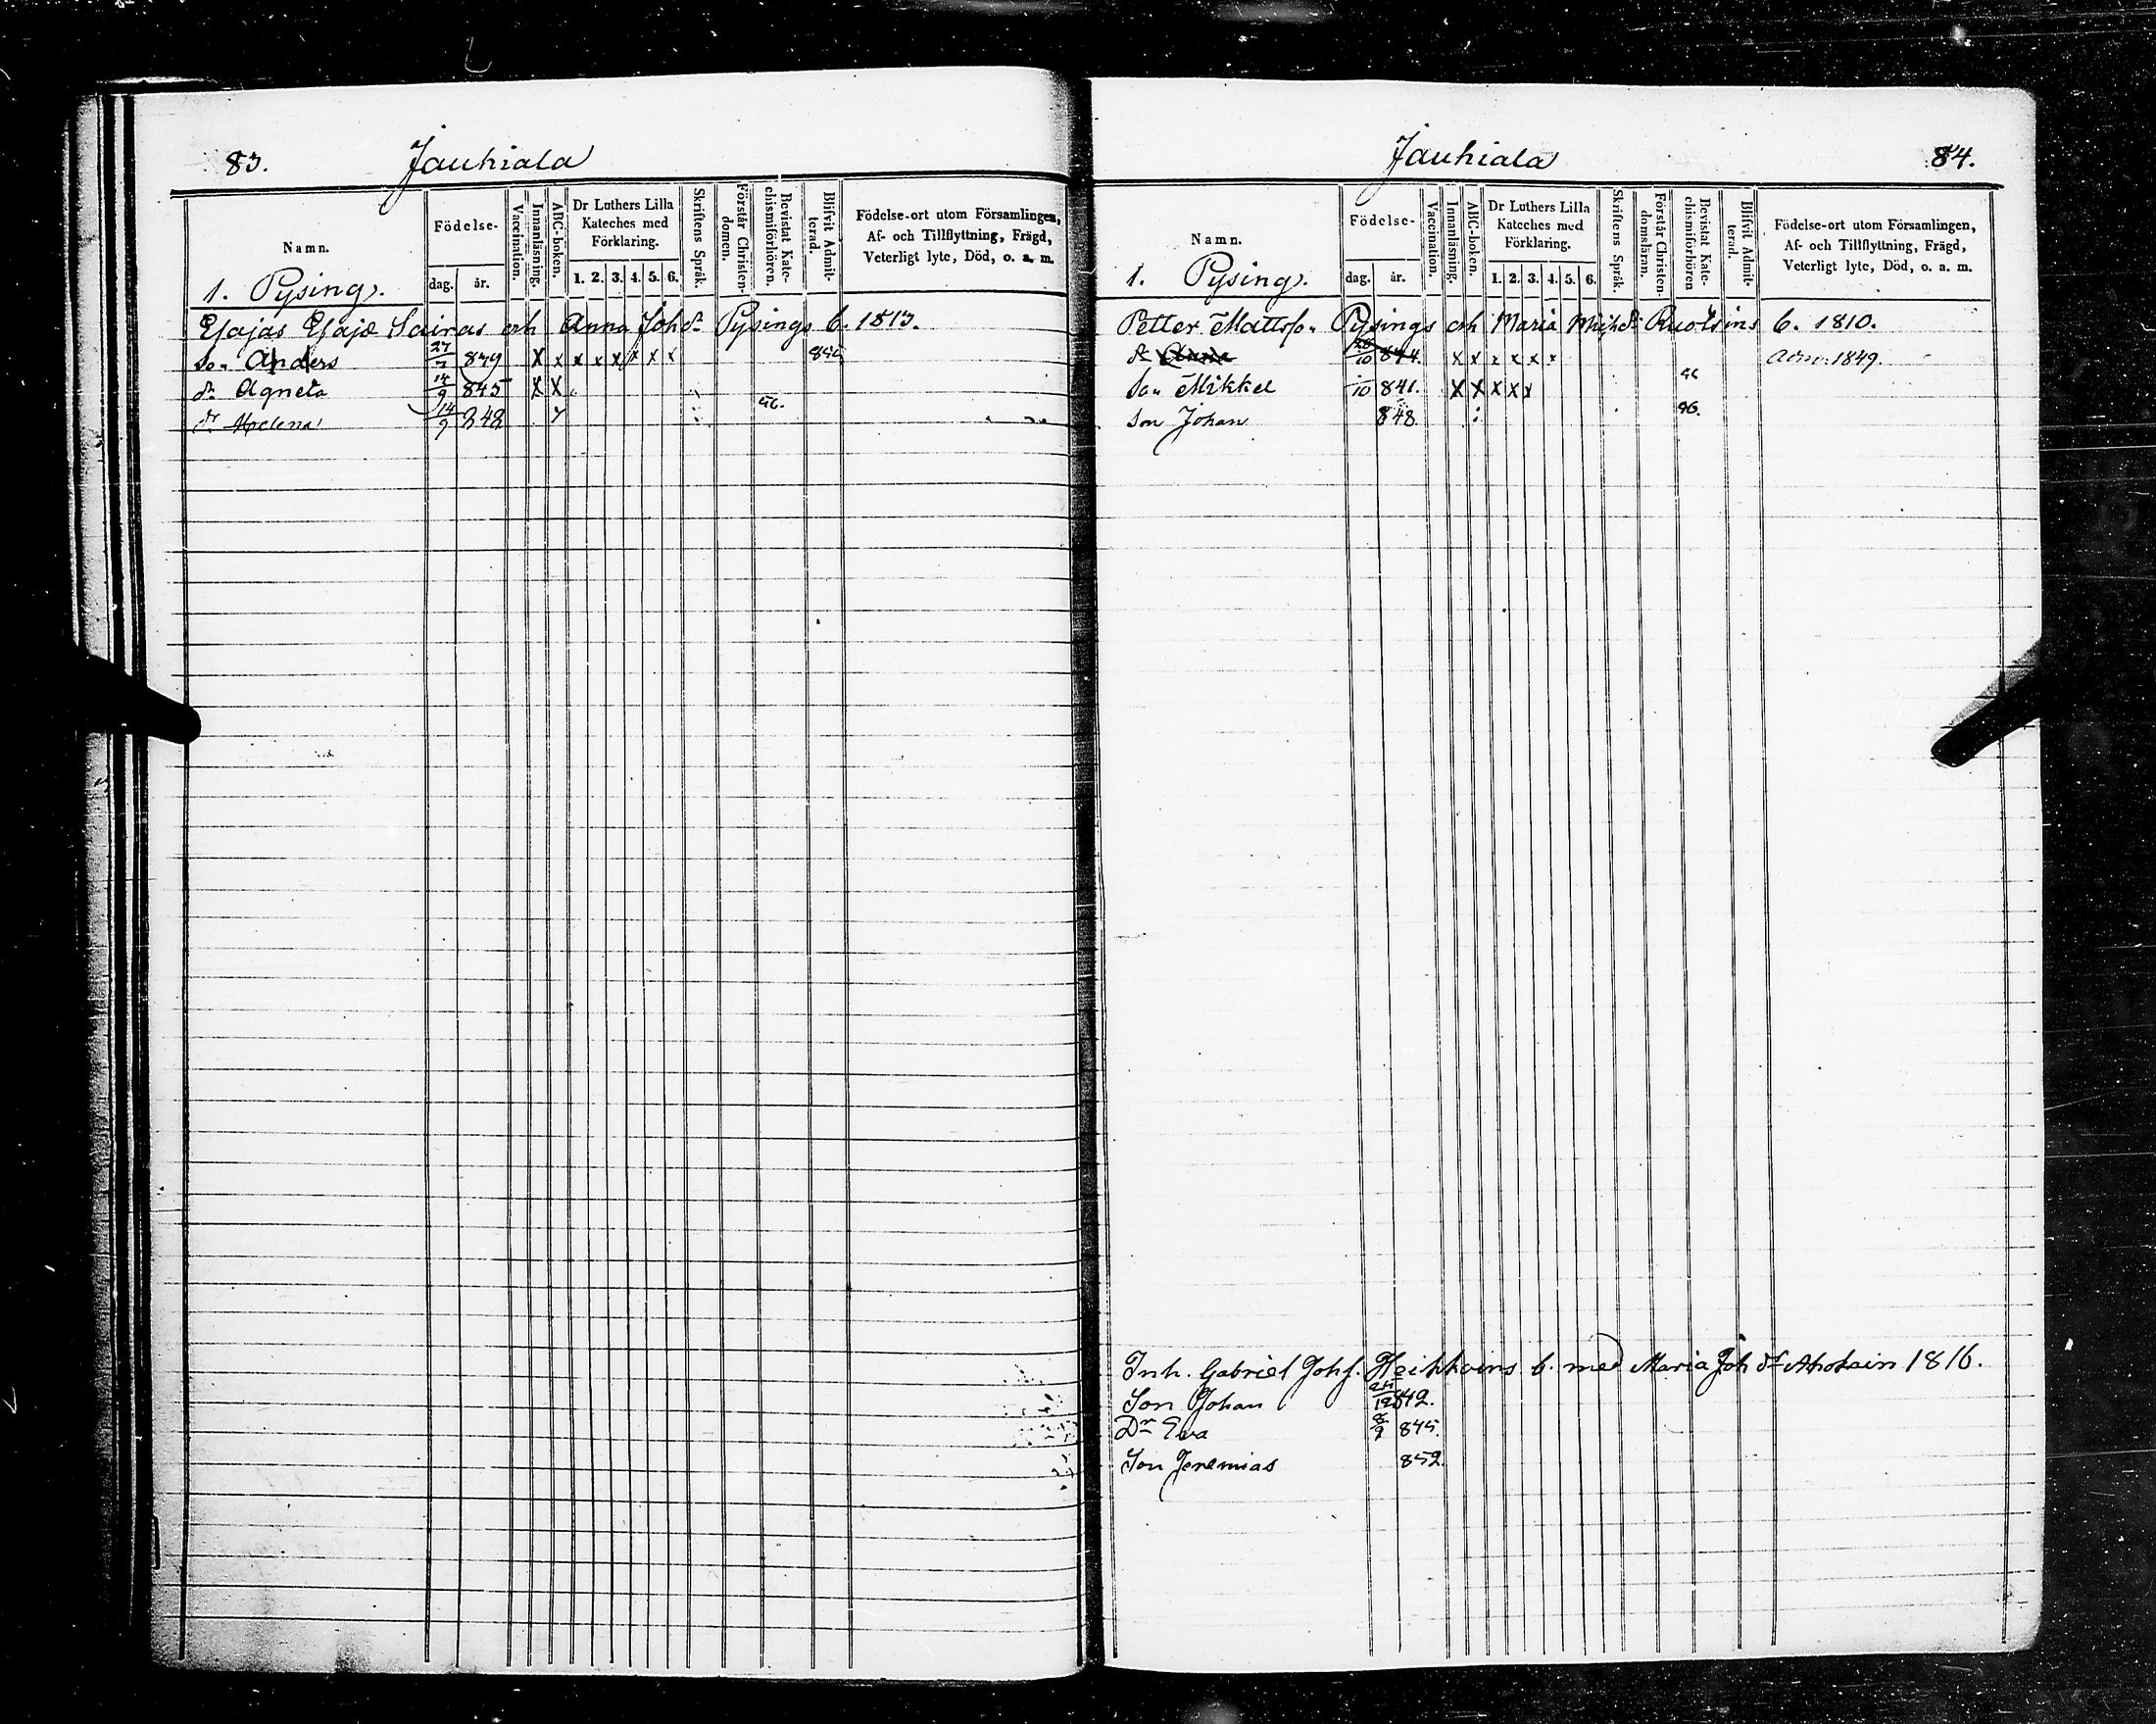 83. Jauhiala
Namn. Födelse- dag. år. Vaccination. Innanläsning. ABC-boken. Dr Luthers Lilla Kateches med Förklaring. 1. 2. 3. 4. 5. 6. Skriftens Språk. Förstår Christen-domen. Bevistat Kate-chismiförhören. Blifvit Admit-terad. Födelse-ort utom Församlingen, Af- och Tillflyttning, Frägd, Veterligt lyte, Död, o. a. m.
1. Pysing.
Esajas Esajæ Sairas och Anna Joh dr Pysings b. 1813.
Son Anders 27/7 839 X x x x x x x x
dr Agneta 14/9 845 X X
dr Helena 14/9 848
Jauhiala 84.
Namn. Födelse- dag. år. Vaccination. Innanläsning. ABC-boken. Dr Luthers Lilla Kateches med Förklaring. 1. 2. 3. 4. 5. 6. Skriftens Språk. Förstår Christen-domsläran. Bevistat Kate-chismiförhören Blifvit Admit-terad. Födelse-ort utom Församlingen, Af- och Tillflyttning, Frägd, Veterligt lyte, Död, o. a. m.
1. Pysing.
Petter Mattsson Pysings och Maria Mich dr Ruotsins b. 1810.
dr Anna 10 x x x x x x 1849.
Son Mikkel 10 841. X X x x x
Son Johan 848. 46.
Inh. Gabriel Johs. Heikkoins b. med Maria Joh dr Ahokain 1816.
Son Johan 12 842.
Dr Eva 8/9 845.
Son Jeremias 852.